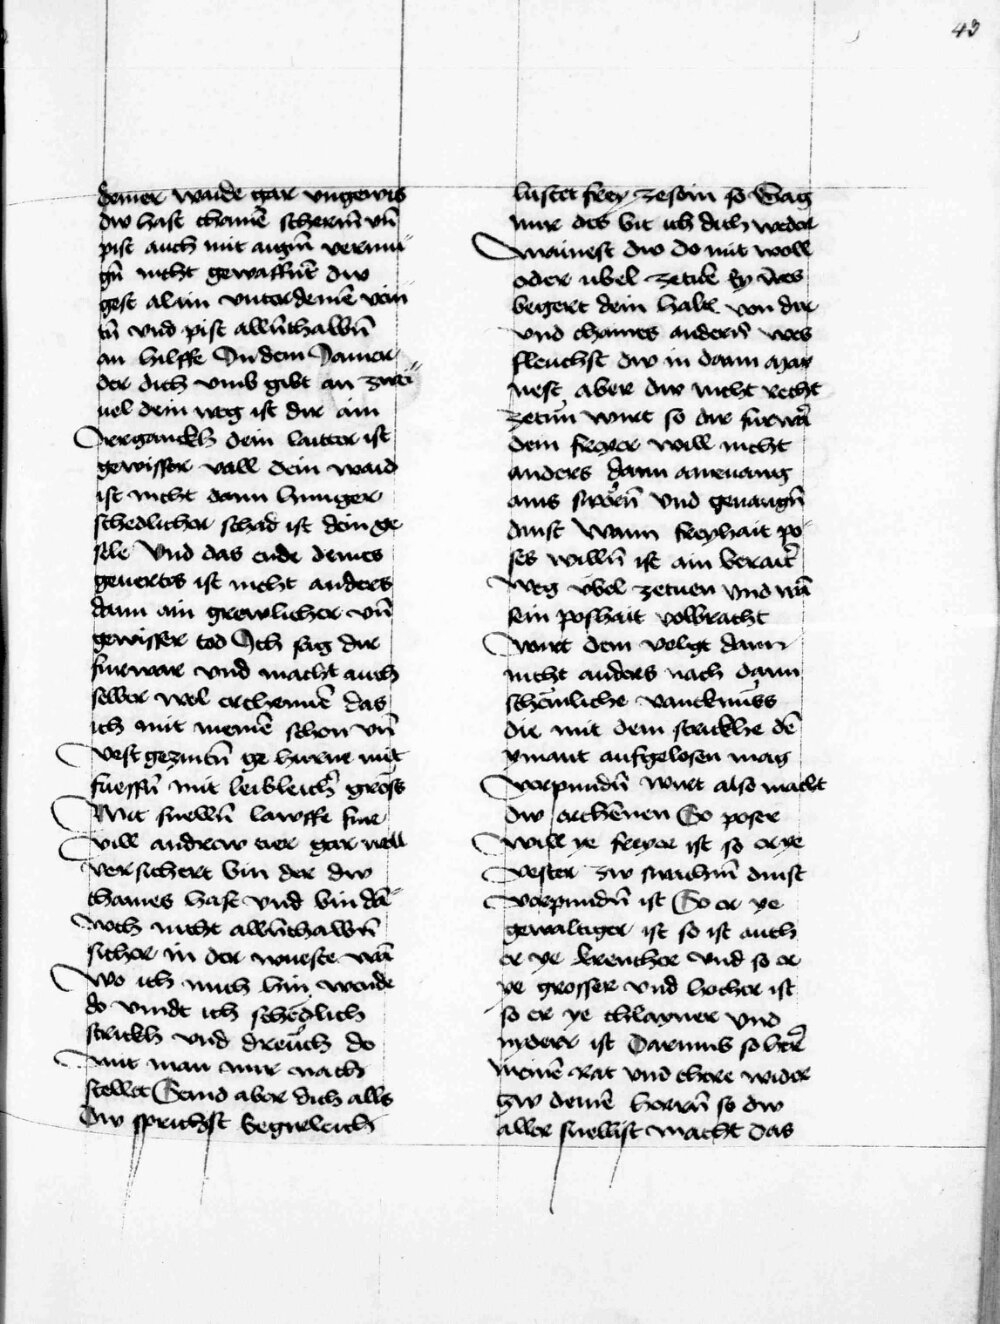 43
deiner waide gar vngewis
dw hast chainē schermē vñ
pist auch mit augñ vernuf
gñ nicht gewaffnt dw
gest alain vnter deinē vein
tñ vnd pist allñthalbñ
an hilffe In dem Jamer
der dich vmb gibt an zwei
uel dein weg ist dir ain
Irrganckh dein laitter ist
gewisser vall dein waid
ist nicht dann hunger
schedlicher schad ist dein ge
sele Vnd das ende deines
geuertes ist nicht anders
dann ain grewlicher vñ
gewisser tod Ich sag dir
furwar vnd macht auch
selber wol erchennē das
ich mit meinē schon vñ
vest geziertñ gehurne mit
fuessñ mit leibleichr gross
Mit snellñ lawffe fur
vill andrew tier gar woll
versichert bin der dw
chaines hast vnd bin dā
noch nicht allñthalbñ
sicher in der wueste wañ
wo ich mich hin wende
do vindt ich schedlich
strickh vnd dreuch do
mit man mir nach
stellet Seind aber dich alls
dw sprichst begirleich
lustet frey zesein so Sag
mir des bit ich dich weder
mainest dw do mit woll
oder ubel zetun Ey wes
begert dein halt von dir
vnd chaines andern wes
fleuchst dw in dann Mai
nest aber dw nicht recht
zetun wirt so dir furwar
dein freyer will nicht
anders dann ain euang
ains swerñ vnd geuangñ
dinst Wann freyhait po
ses willñ ist ain beraitr
weg vbel zetuen vnd wañ
sein poshait volbracht
wirt dem volgt dann
nicht anders nach dann
schemliche vancknuss
die mit dem strickhe dē
ymant aufgelosen mag
verpundñ wirt also macht
dw erchennen So poser
will ye freyer ist so er ye
vester zw swarñ dinst
verpundñ ist So er ye
gewaltiger ist so ist auch
er ye krencher vnd so er
ye grosser vnd hocher ist
so er ye chlayner vnd
nyderr ist Darumb so her
meinē rat vnd chere wider
zw deinē herrñ so dw
aller snellist macht das